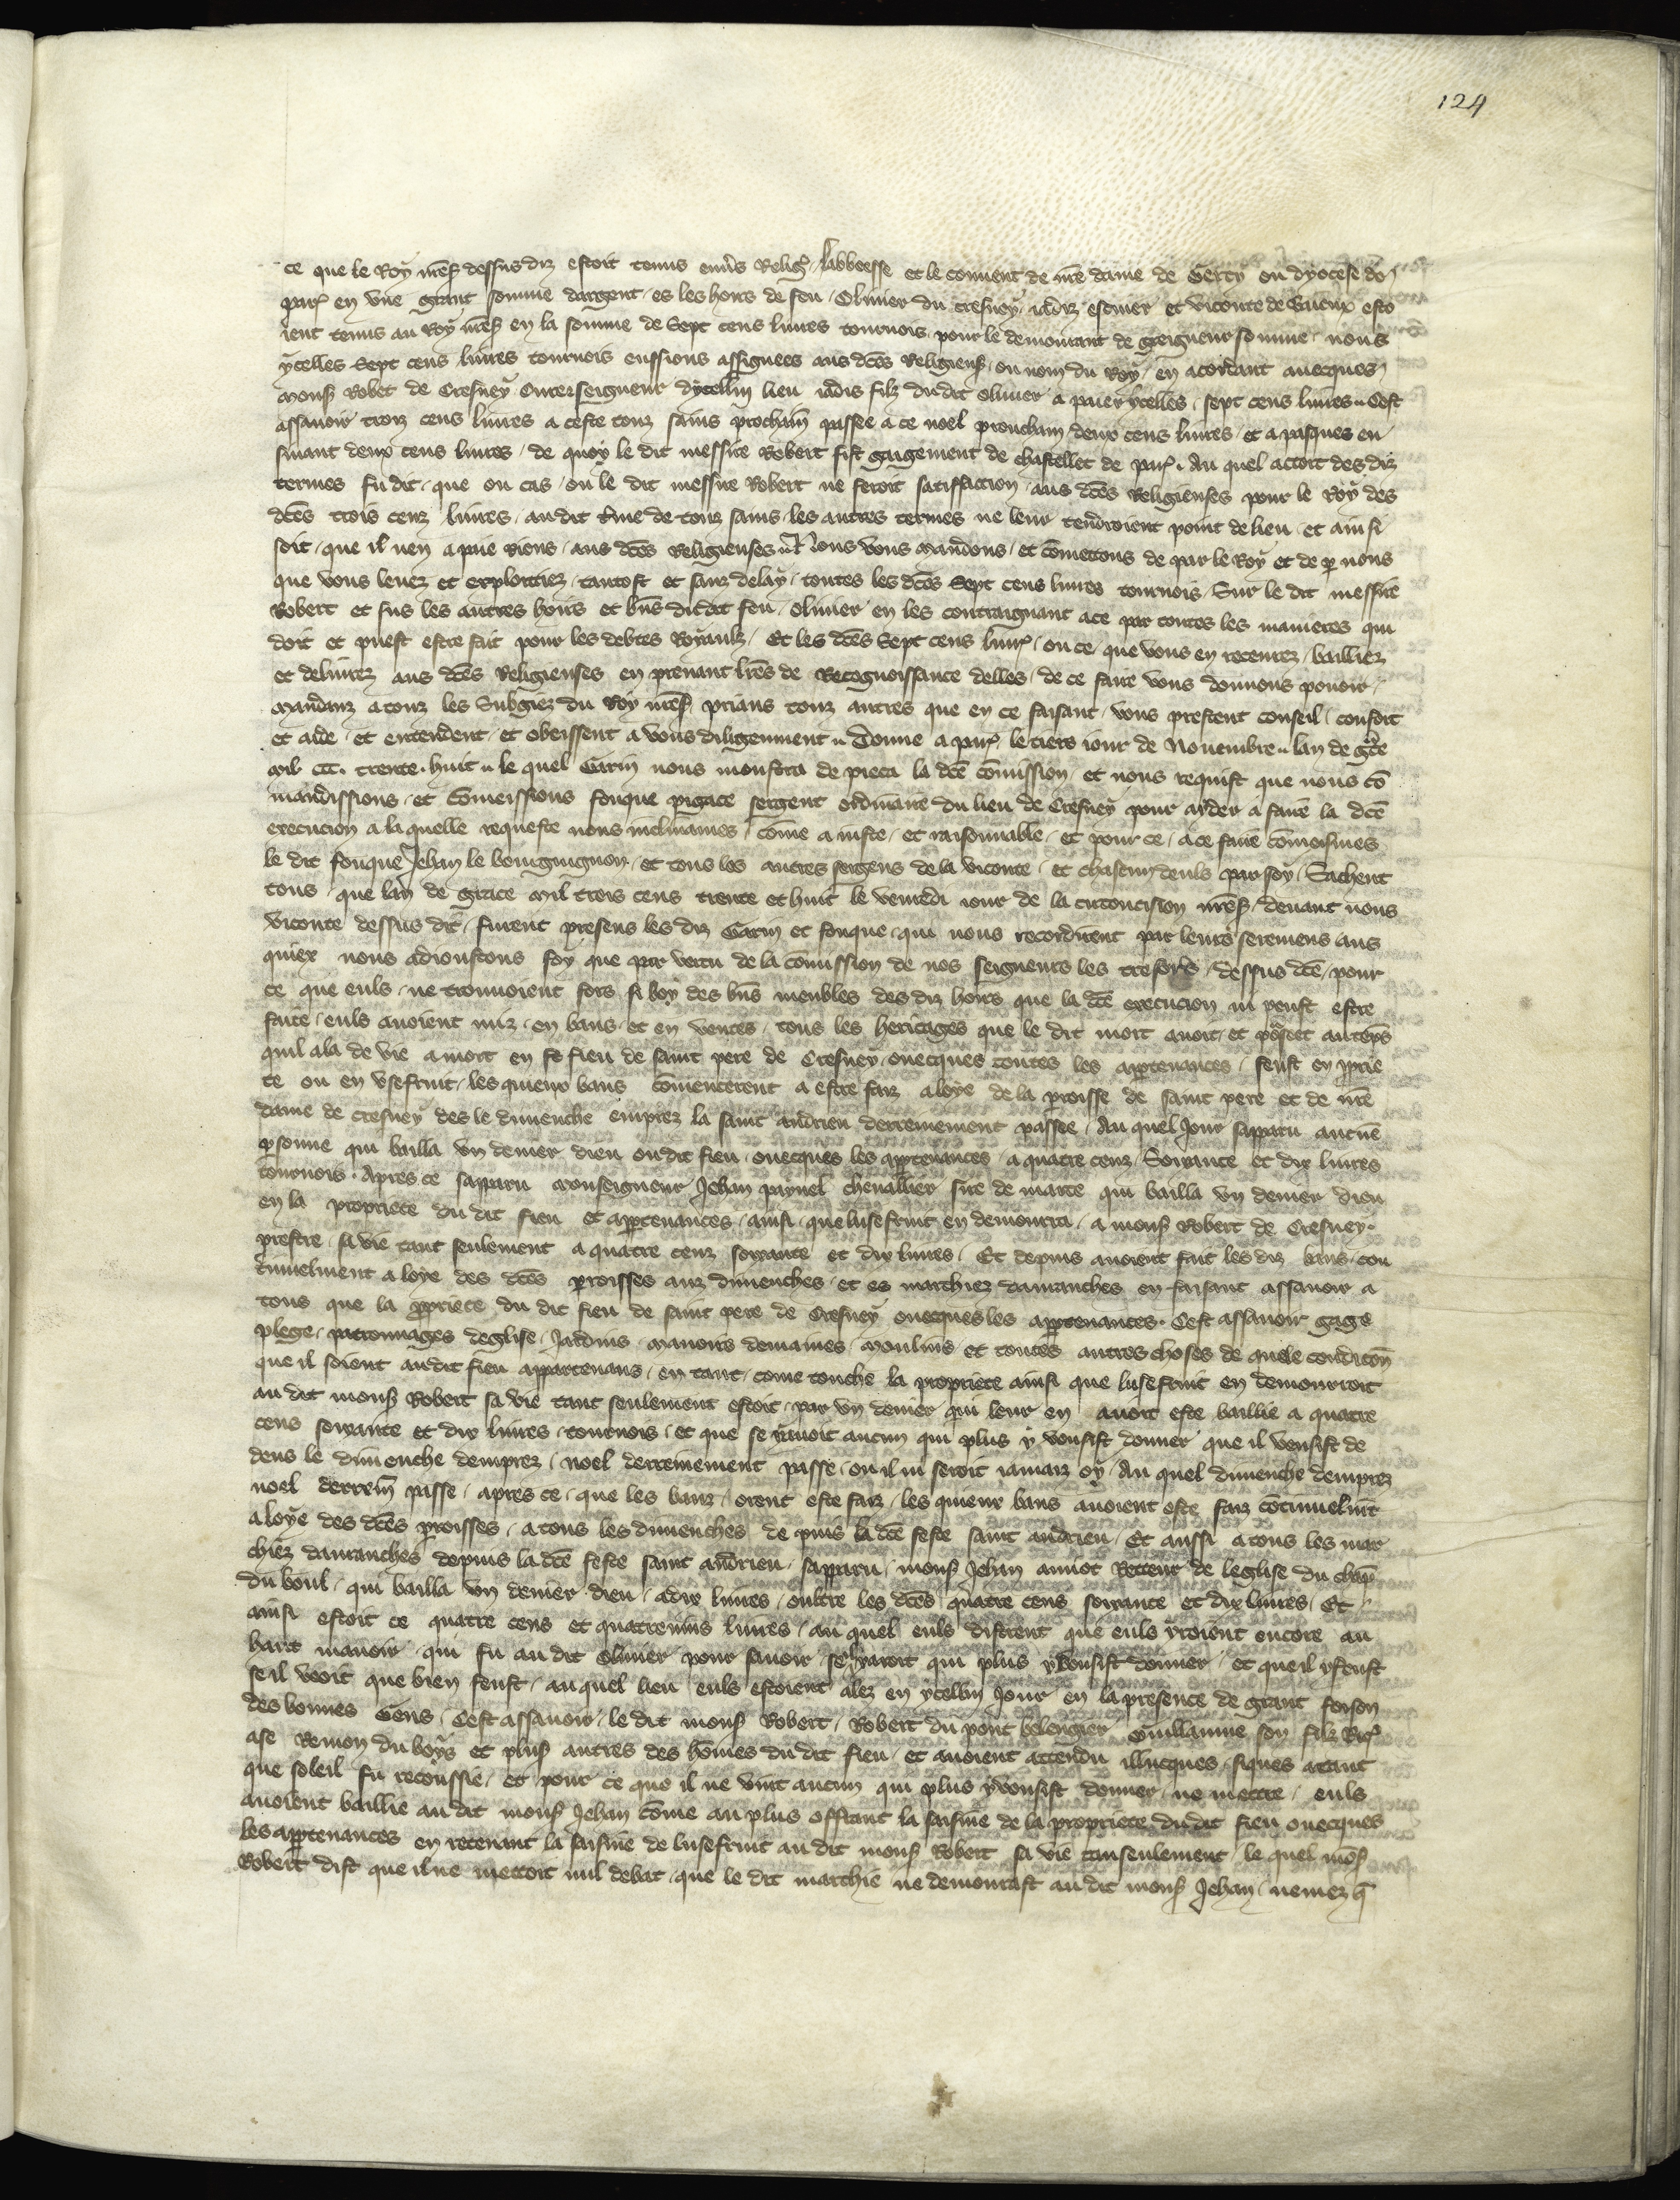 124
ce que le Roy nre s dessus diz estoit tenus envs Religs labbeesse et le convent de nre dame de Gercy ou dyocese de
par en une grant somme dargent, es les hoirs de feu Olivier du cresney iadiz escuier et viconte de Evreux esto
ient tenus au Roy nre s en la somme de Sept cens livres tournois pour le demourant de greigneur somme nous
ycelles Sept cens livres tournois eussions assignees aus dces Religieuses ou nom du Roy en acordant avecques
mons Robet de Cresney seigneur dycellui lieu iadis filz dudit olivier a paier ycelles sept cens livres Cest
assavoir trois cens livres a ceste touz sains prochain passee a ce noel prouchain deux cens livres et a pasques en
suiant deux cens livres de quoy le dit messire Robert fist gaigement de chastellet de par. Au quel acort des diz
termes fu dit que ou cas ou le dit messire Robert ne feroit satisfaction aus dces Religieuses pour le Roy des
dces trois cenz livres audit tme de touz sains les autres termes ne leur tendroient point de lieu et ainsi
soit que il nen a paie riens aus dces Religieuses Nous vous mandons et comettons de par le Roy et de p nous
que vous levez et exploittiez tantost et sanz delay toutes les dces Sept cens livres tournois Sur le dit messire
Robert et sus les autres hoirs et bns dudit feu olivier en les contraignant a ce par toutes les manieres qui
doit et puest estre fait pour les debtes Royaulz Et les dces Sept cens livr ou ce que vous en recevrez bailliez
et delivrez aus dces Religieuses en prenant lres de Recognoissance delles de ce faire vous donnons pouoir
mandanz a touz les Subgiez du Roy nre s prians touz autres que en ce faisant vous prestent conseil confort
et aide et entendent et obeissent a vous diligenment Donne a par le tiers iour de Novembre lan de gce
mil CCC. trente huit le quel Garin nous monstra de pieca la dce comission et nous requist que nous co
mandissions et comeissions fouque pigace sergent ordinaire du lieu de Cresney pour aider a faire la dce
execucion a la quelle requeste nous inclinames come a iuste et raisonnable et pour ce a ce faire comeismes
le dit fouque Jehan le bourguignon et tous les autres sergens de la viconte et chascun deuls par soy Sachent
tous que lan de grace mil trois cens trente et huit le venredi iour de la circoncision nre s devant nous
viconte dessus dit furent presens les diz Garin et fouque qui nous recordirent par leurs seremens aus
quiex nous adioustons foy que par vertu de la comission de nos seigneurs les tresors dessus dce pour
ce que euls ne trouvoient fors si poy des bns meubles des diz hoirs que la dce execucion ni peust estre
faite euls avoient miz en bans et en ventes tous les heritages que le dit mort avoit et poseet au teps
quil ala de vie a mort en se fieu de saint pere de Cresney ovecques toutes les aptenances feust en pprie
te ou en usefruit les quieux bans comencerent a estre faiz a loye de la proisse de saint pere et de nre
dame de cresney des le dimenche emprez la saint andrieu derrenierement passee Au quel Jour sapparu aucune
psonne qui bailla un denier dieu oudit fieu ovecques les aptenances a quatre cenz Soixante et dix livres
tournois. Apres ce sapparu monseigneur Jehan paynel chevallier sire de marce qui bailla un denier dieu
en la propriete du dit fieu et aptenances ainsi que lusefruit en demourra a mons Robert de Cresney
prestre sa vie tant seulement a quatre cenz soixante et dix livres Et depuis avoient fait les diz bans con
tinuelment a loye des dces proisses aux dimenches et es marchiez davranches en faisant assavoir a
tous que la ppriete du dit fieu de saint pere de Cresney ovecques les aptenances. Cest assavoir gage
plege patronnages deglise Jardins manoirs demaines moulins et toutes autres choses de quele condicon
que il soient audit fieu appartenans en tant come touche la propriete ainsi que lusefruit en demourroit
au dit mons Robert sa vie tant seulement estoit par un denier qui leur en avoit este baillie a quatre
cens soixante et dix livres tournois et que se y avoit aucun qui plus y vousist donner que il venist de
dens le dimenche demprez noel derrenierement passe ou il ni seroit iamaiz oy Au quel dimenche demprez
noel derren passe apres ce que les banz orent este faiz les quieux bans avoient este faiz continuelmt
a loye des dces proisses a tous les dimenches de puis la dce feste saint andrieu Et aussi a tous les mar
chiez davranches depuis la dce feste saint andrieu sapparu mons Jehan amiot Retteur de leglise du champ
du boul qui bailla un denier dieu a dix livres oultre les dces quatre cens soixante et dix livres Et
ainsi estoit ce quatre cens et quatrevins livres au quel euls distrent que euls yroient encore au
hart manoir qui fu au dit Olivier pour savoir se il yaroit qui plus y vousist donner et que il y fust
se il veoit que bien feust au quel lieu euls estoient alez en ycellui Jour en la presence de grant foison
des bonnes Gens Cest assavoir le dit mons Robert Robert du pont belengier Guillaume son filz Ric
ase Remon du boys et plus autres des homes du dit fieu et avoient attendu illecques siques atant
que soleil fu recoussie et pour ce que il ne vint aucun qui plus y vousist donner ne mettre euls
avoient baillie au dit mons Jehan come au plus offrant la saisine de la propriete du dit fieu ovecques
les aptenances en retenant la saisine de lusefruit au dit mons Robert sa vie tanseulement le quel mos
Robert dist que il ne mettoit nul debat que le dit marchie ne demourast au dit mons Jehan nemez q